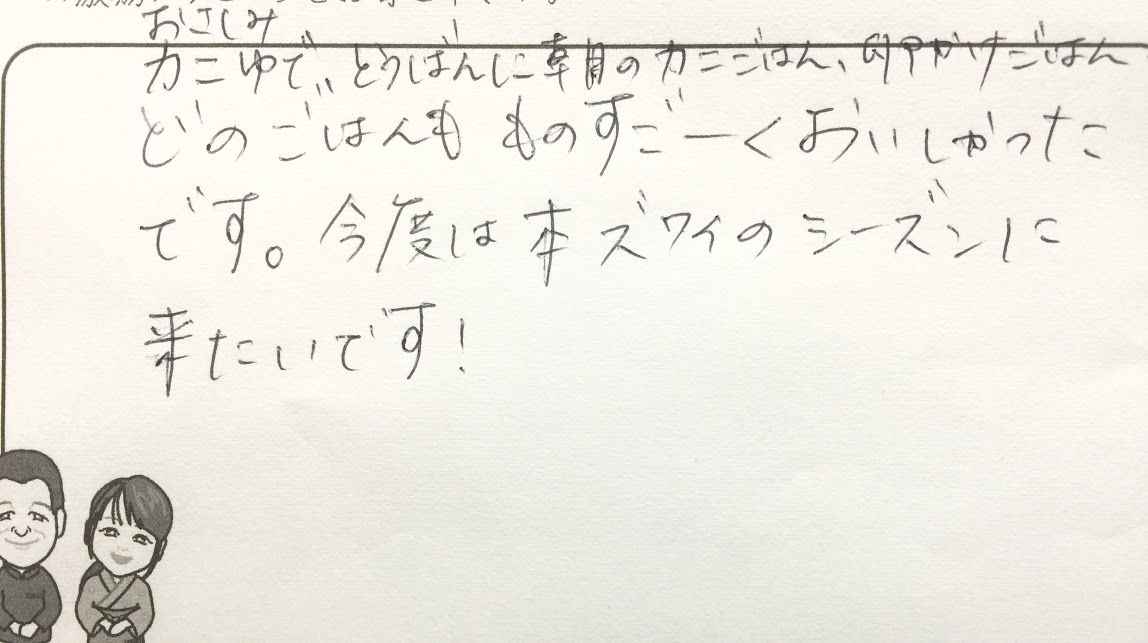 おさしみ
カニゆで、とうばんに朝のカニごはん、卵かけごはん
どのごはんも ものすごーくおいしかった
です。今度は本ズワイのシーズンに
来たいです!